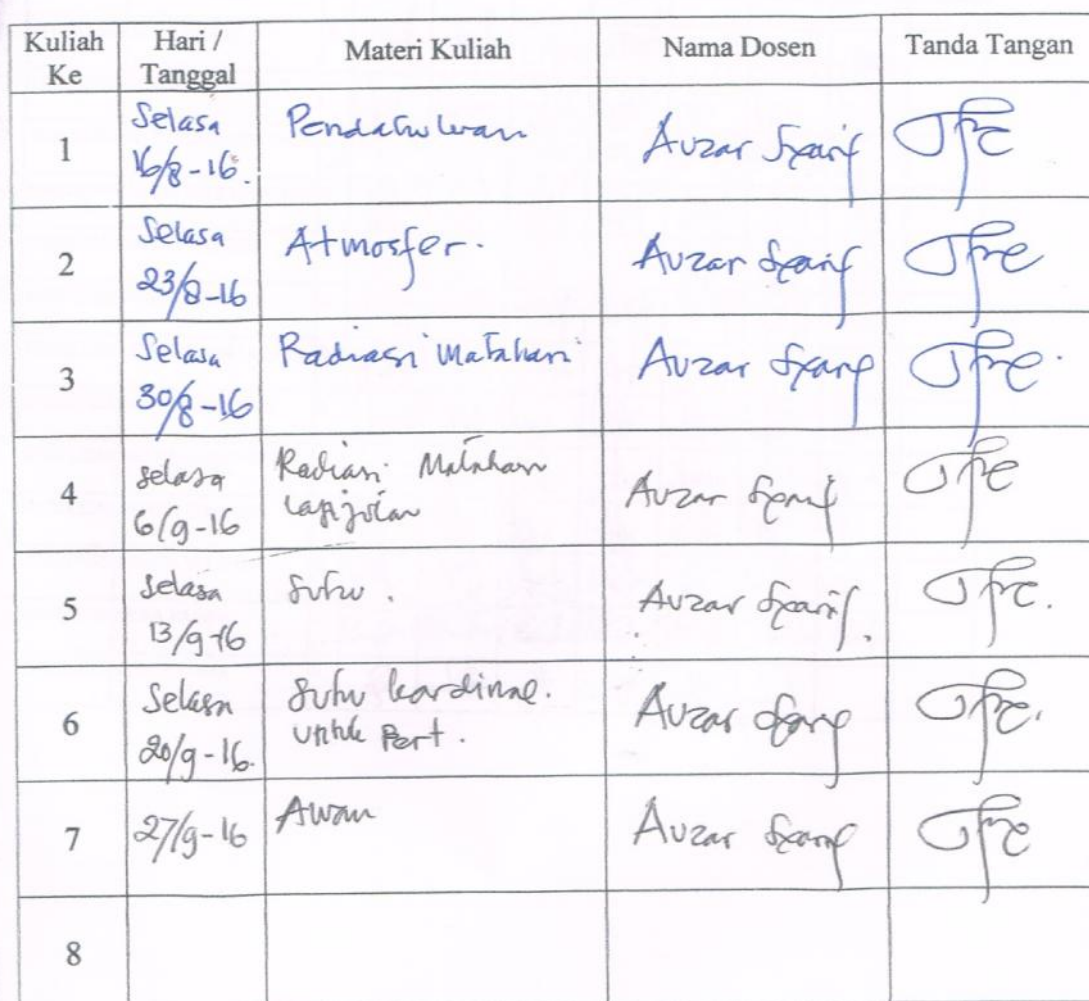 Kuliah Ke Hari / Tanggal Materi Kuliah Nama Dosen Tanda Tangan
1 Selasa 16/8-16. Pendahuluan Auzar Syarif
2 Selasa 23/8-16 Atmosfer. Auzar Syarif
3 Selasa 30/8-16 Radiasi Matahari Auzar Syarif
4 Selasa 6/9-16 Radiasi Matahari Auzar Syarif
5 Selasa 13/9-16 Suhu. Auzar Syarif.
6 Selasa 20/9-16. Suhu kardinal. Auzar Syarif
untuk Pert.
7 27/9-16 Awan Auzar Syarif
8